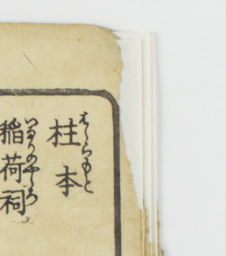 柱本
はしらもと
稲荷祠
いなりのやしろ